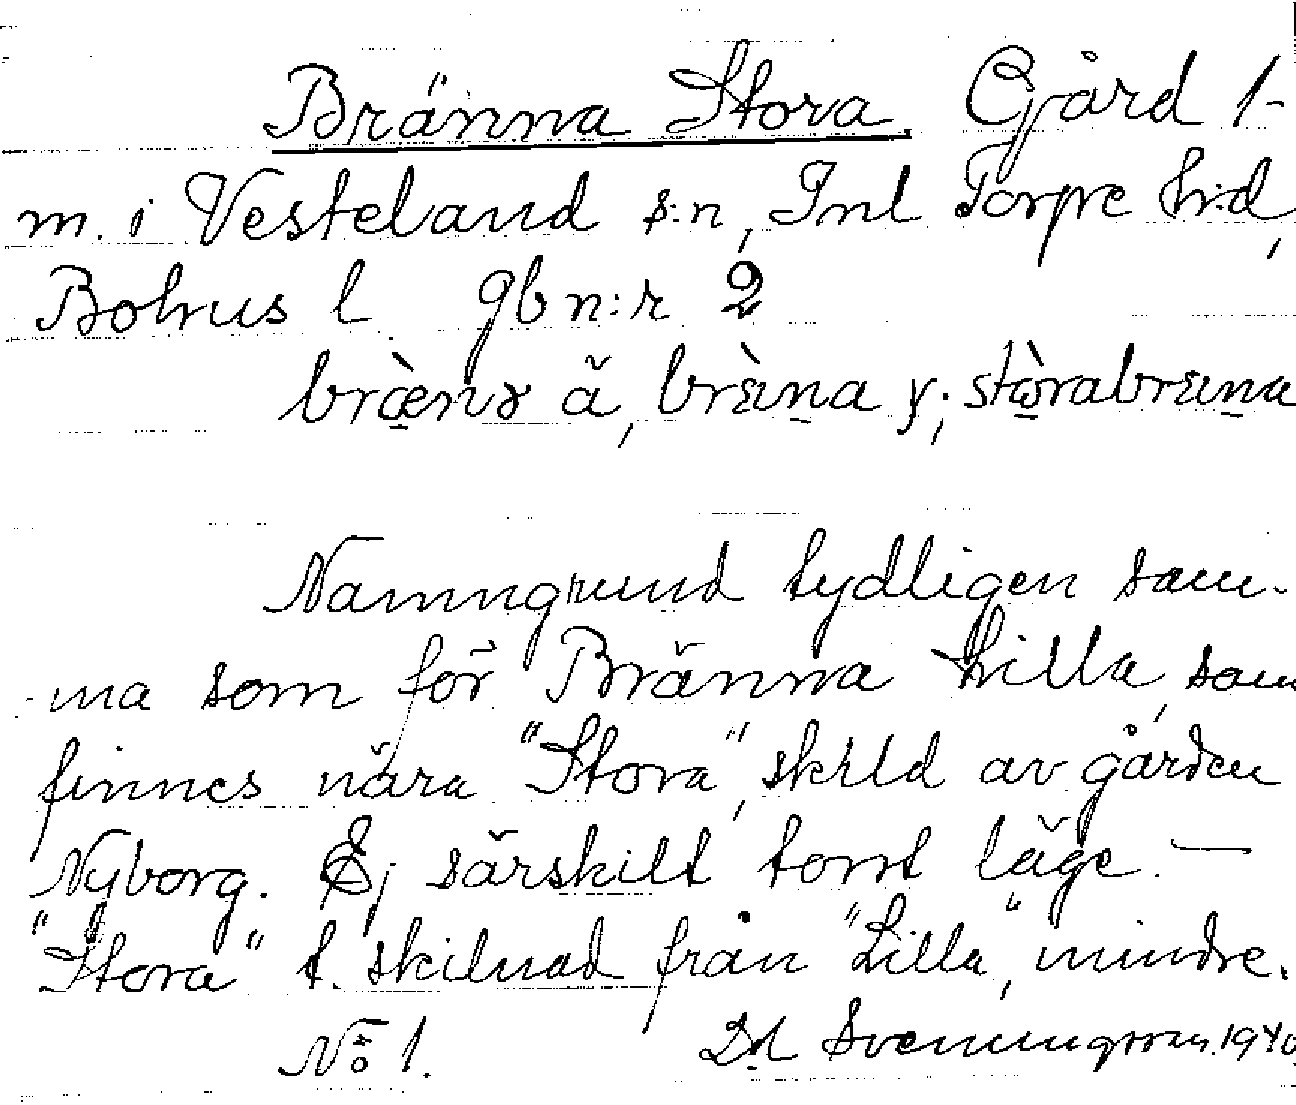 Bränna Stora Gård 1-
m. i Vesteland s:n, Inl Torpe h:d,
Bohus l gb n:r 2
bræ̀nɤ ă, brɛ̀ɩna y; stɷ̀rabrɛɩna
Namngrund tydligen sam-
ma som för Bränna Lilla, som
finnes nära "Stora", skild av gården
Nyborg. Ej särskilt torrt läge. —
"Stora" t. skilnad från "Lilla", mindre.
No 1. Dd Sveningsson. 1940